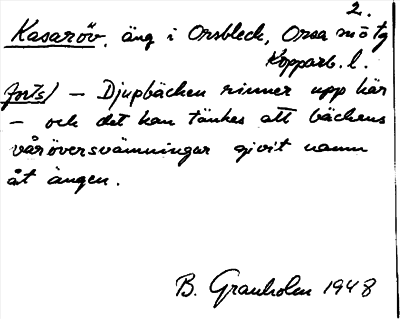 2.
Kasaröv, äng i Orsbleck, Orsa sn o tg
Kopparb. l.
forts) – Djupbäcken rinner upp här
– och det kan tänkas att bäckens
våröversvämningar givit namn
åt ängen.
B. Granholm 1948